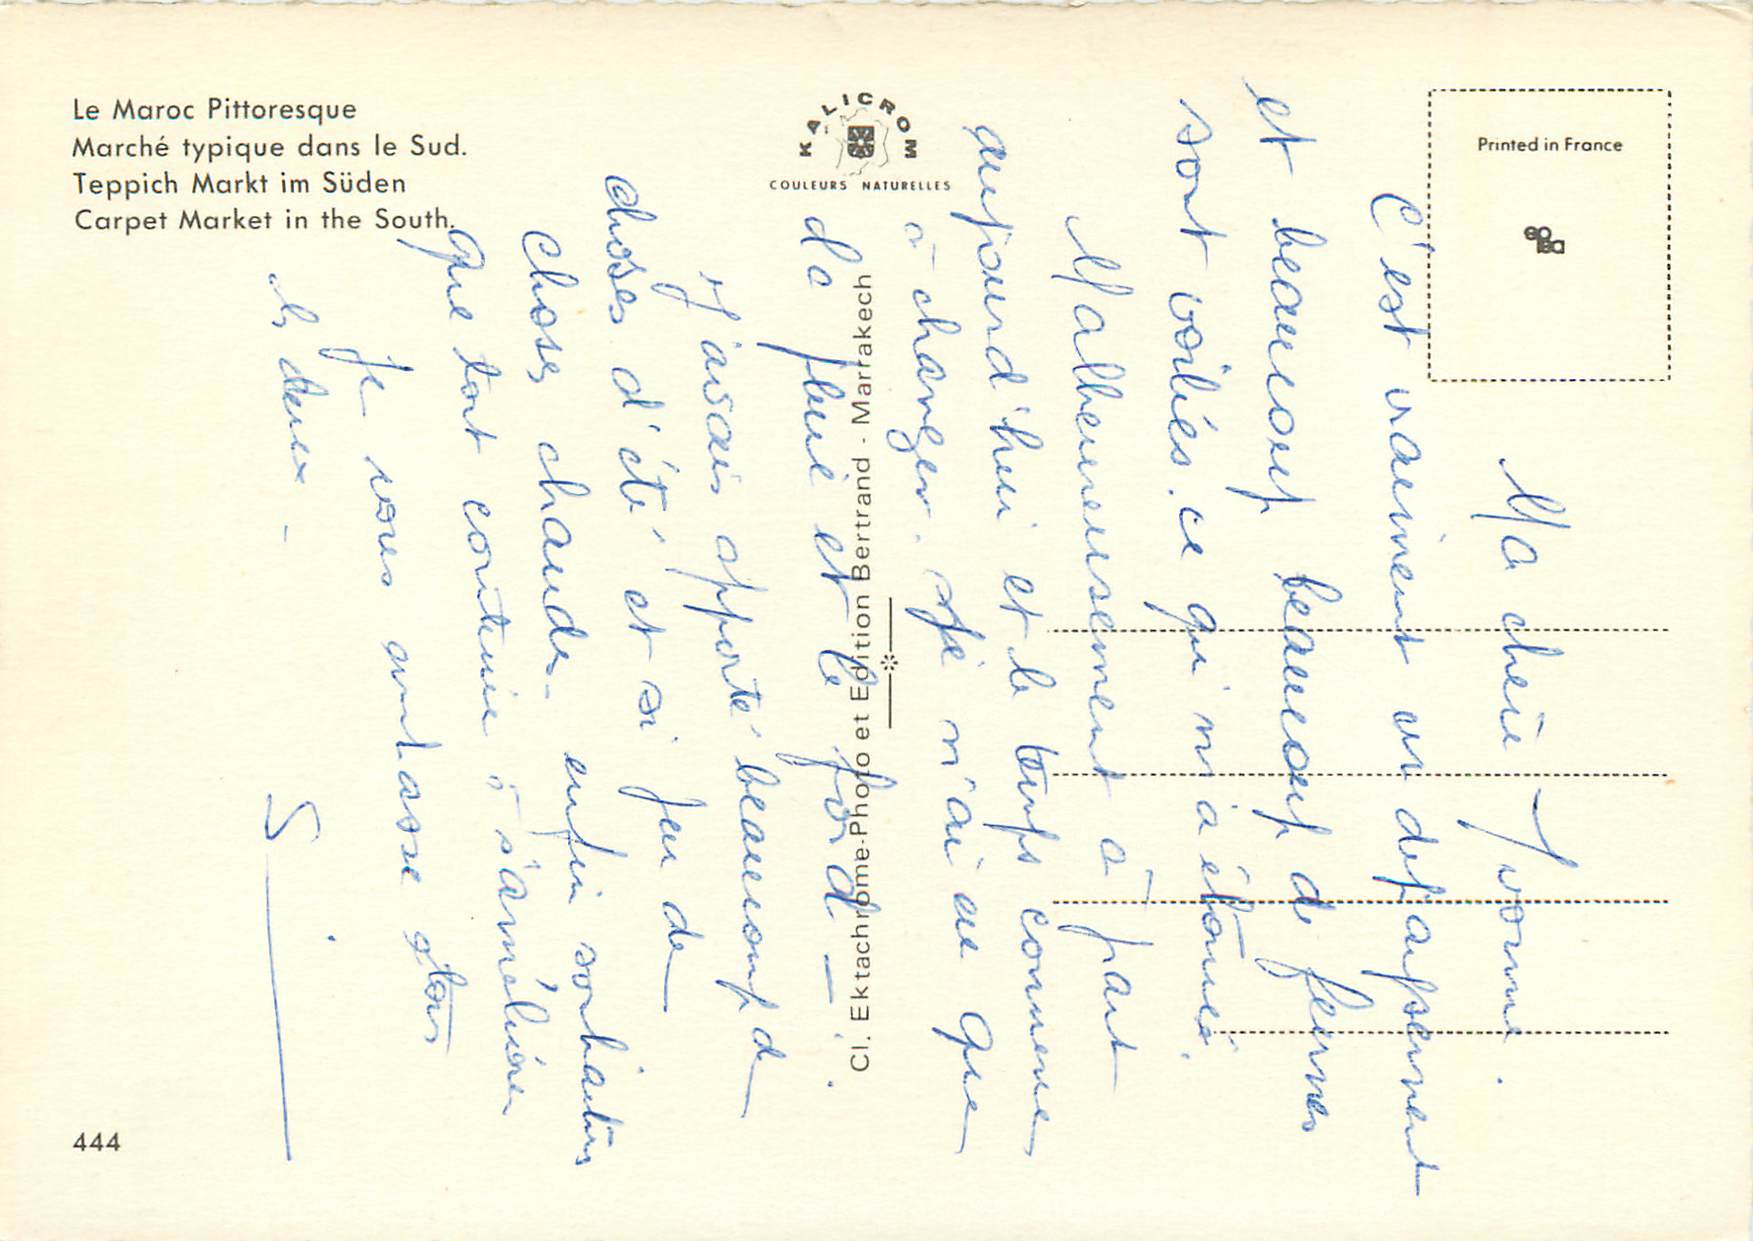 Le Maroc Pittoresque
Marché typique dans le Sud.
Teppich Markt im Süden
Carpet Market in the South.
KALICROM
COULEURS NATURELLES
Printed in France
Cl. Ektachrome-Photo et Edition Bertrand - Marrakech
444
Ma chère Yvonne.
C'est vraiment un dépaysement
et beaucoup beaucoup de femmes
sont voilées. ce qui m'a étonné.
Malheureusement à part
aujourd'hui et le temps commence
à changer. Je n'ai eu que
de la pluie et le froid -
J'avais apporté beaucoup de
choses d'été et si peu de
choses chaudes - enfin souhaitons
que tout continue à s'améliorer
Je vous embrasse tous
les deux -
S